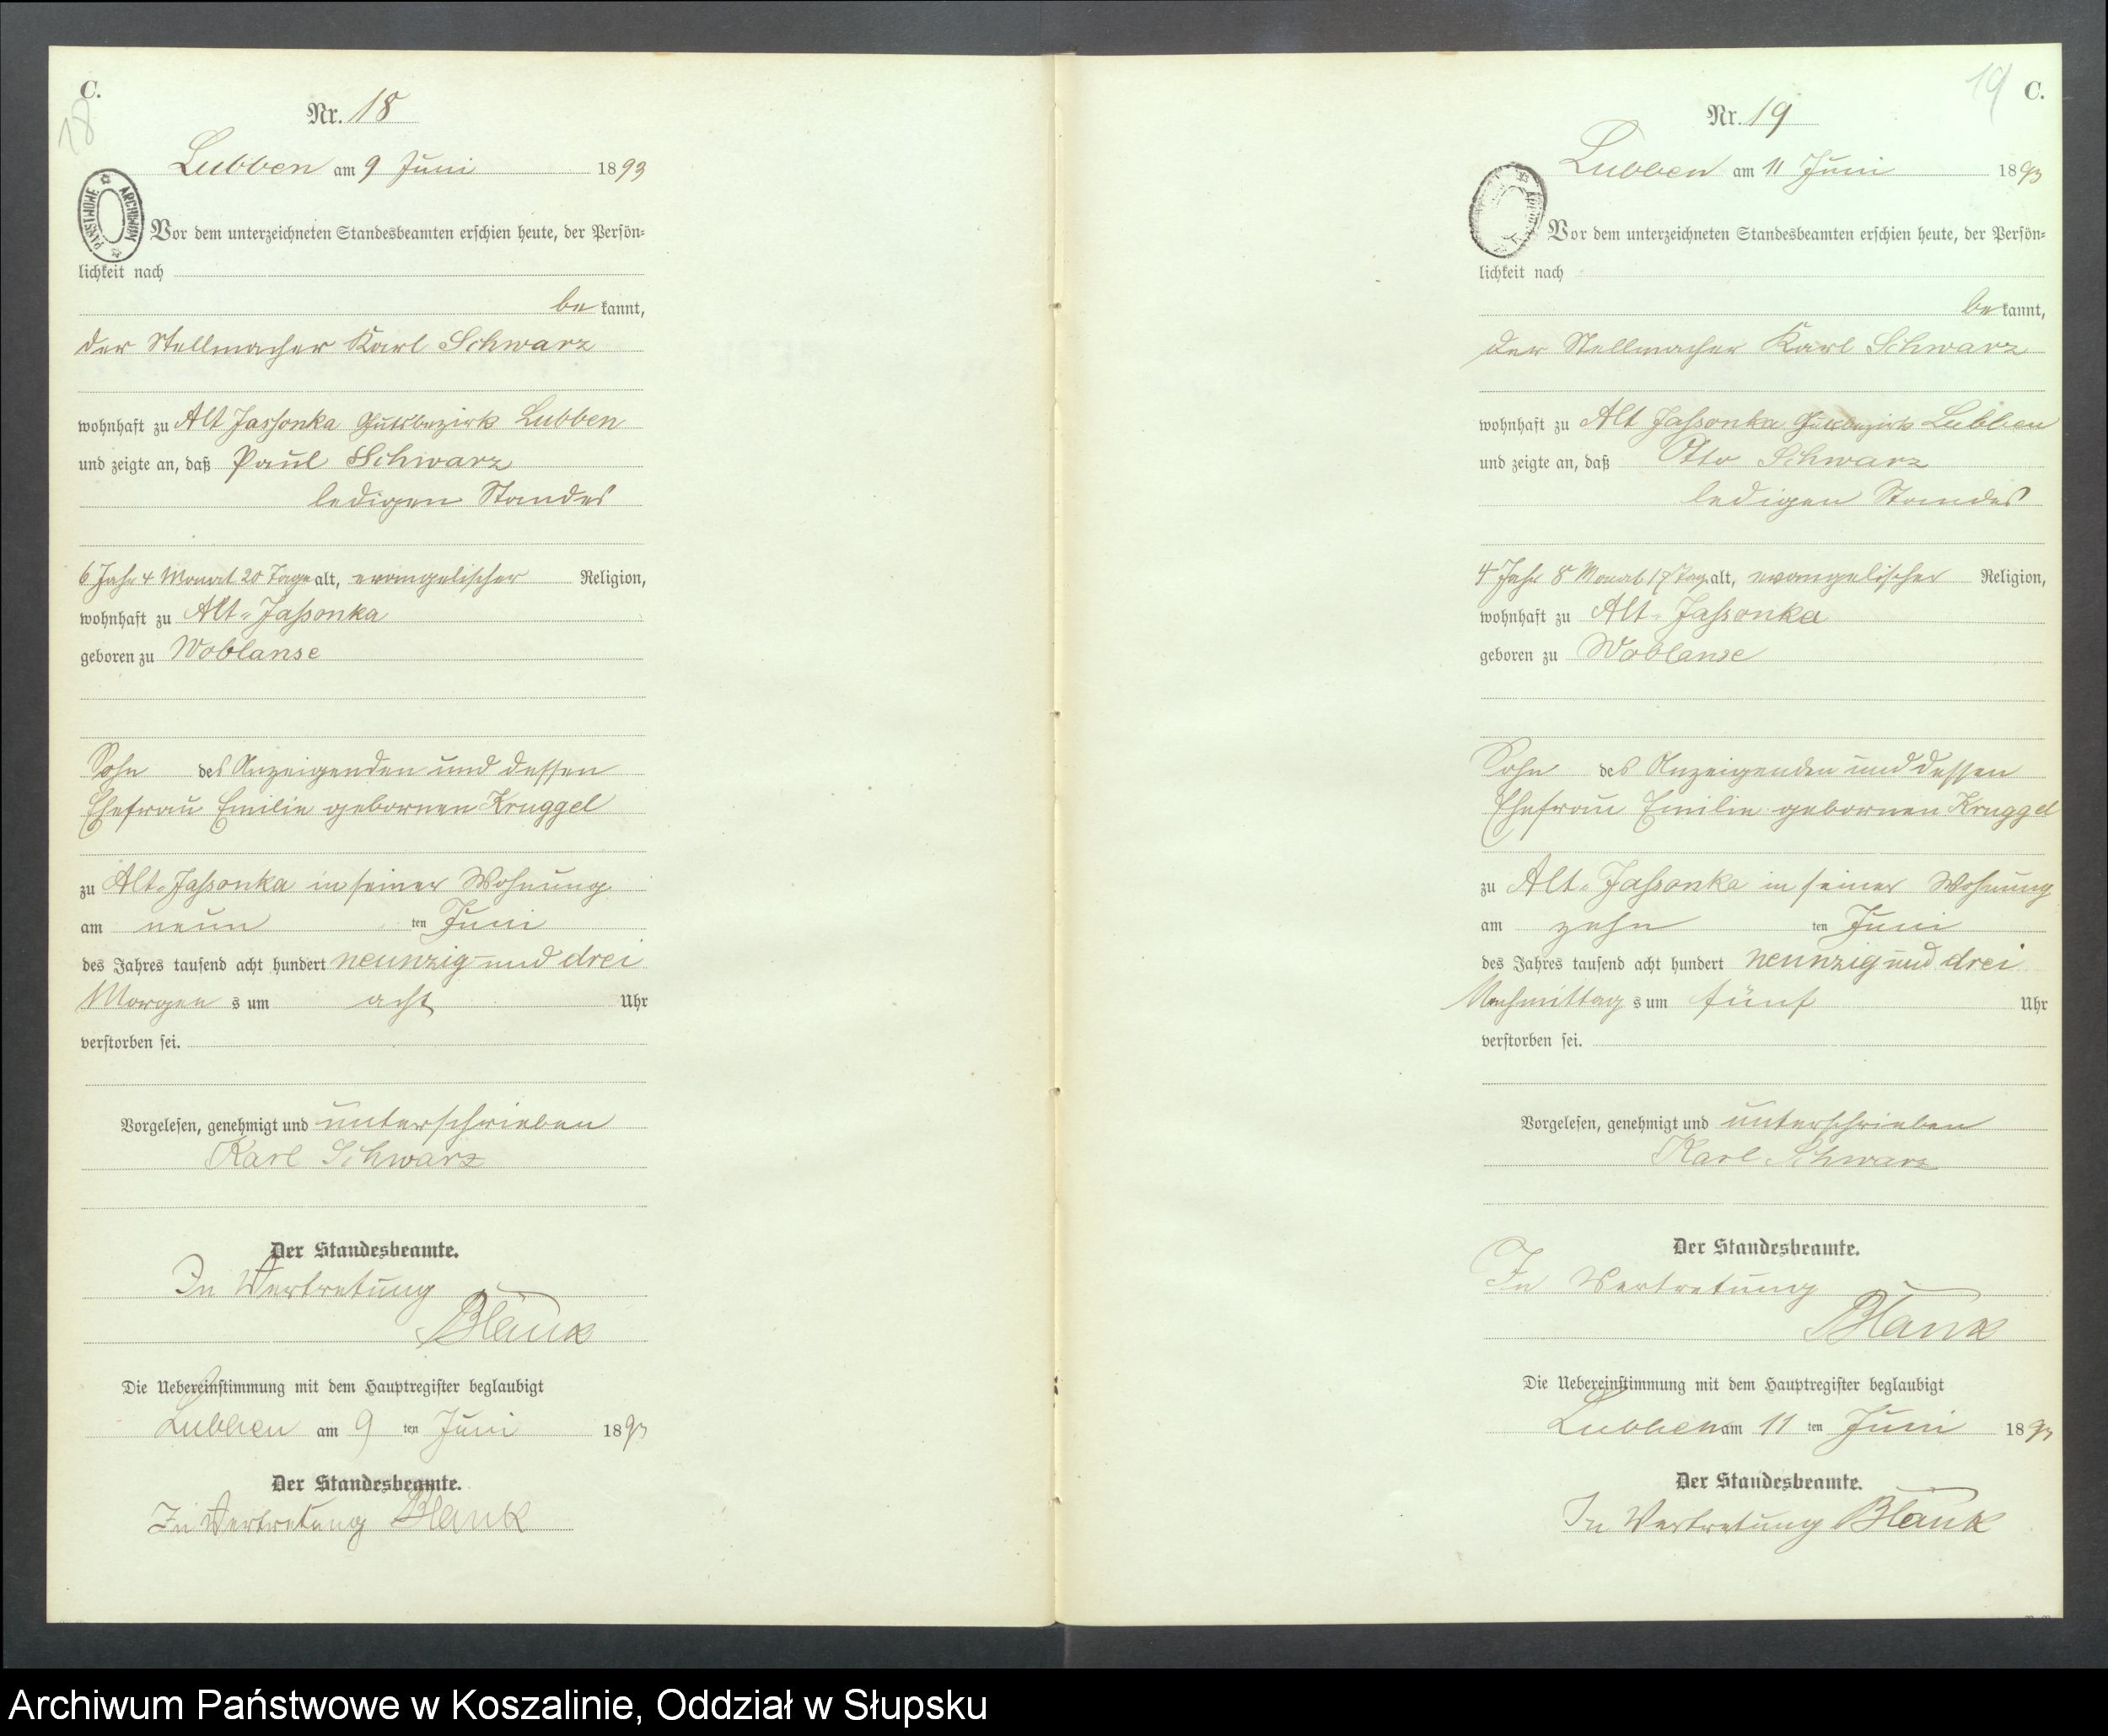 C.
18
Nr. 18
Lubben am 9 Juni 1893
PAŃSTWOWE ARCHIWUM
Vor dem unterzeichneten Standesbeamten erschien heute, der Persön-
lichkeit nach
be kannt,
der Stellmacher Karl Schwarz
wohnhaft zu Alt Jassonka Gutsbezirk Lubben
und zeigte an, daß Paul Schwarz
ledigen Standes
6 Jahr 4 Monat 20 Tage alt, evangelischer Religion,
wohnhaft zu Alt-Jassonka
geboren zu Woblanse
Sohn des Anzeigenden und dessen
Ehefrau Emilie gebornen Kruggel
zu Alt-Jassonka in seiner Wohnung
am neun ten Juni
des Jahres tausend acht hundert neunzig und drei
Morgen s um acht Uhr
verstorben sei.
Vorgelesen, genehmigt und unterschrieben
Karl Schwarz
Der Standesbeamte.
In Vertretung
Blank
Die Uebereinstimmung mit dem Hauptregister beglaubigt
Lubben am 9 ten Juni 1893
Der Standesbeamte.
In Vertretung Blank
19 C.
Nr. 19
Lubben am 11 Juni 1893
Vor dem unterzeichneten Standesbeamten erschien heute, der Persön-
lichkeit nach
be kannt,
der Stellmacher Karl Schwarz
wohnhaft zu Alt Jassonka Gutsbezirk Lubben
und zeigte an, daß Otto Schwarz
ledigen Standes
4 Jahr 8 Monat 17 Tag alt, evangelischer Religion,
wohnhaft zu Alt-Jassonka
geboren zu Woblanse
Sohn des Anzeigenden und dessen
Ehefrau Emilie gebornen Kruggel
zu Alt-Jassonka in seiner Wohnung
am zehn ten Juni
des Jahres tausend acht hundert neunzig und drei
Nachmittag s um fünf Uhr
verstorben sei.
Vorgelesen, genehmigt und unterschrieben
Karl Schwarz
Der Standesbeamte.
In Vertretung
Blank
Die Uebereinstimmung mit dem Hauptregister beglaubigt
Lubben am 11 ten Juni 1893
Der Standesbeamte.
In Vertretung Blank
Archiwum Państwowe w Koszalinie, Oddział w Słupsku